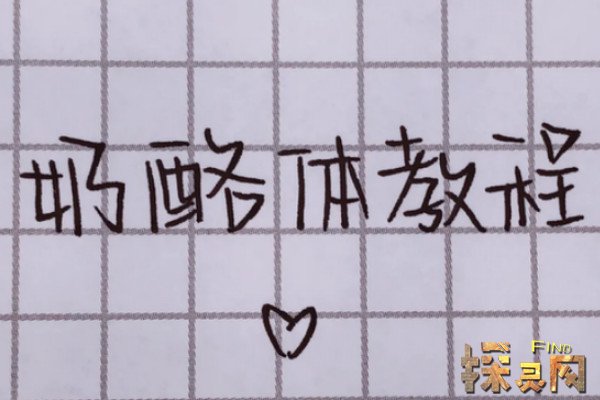 奶酪体教程
FIND
探灵网